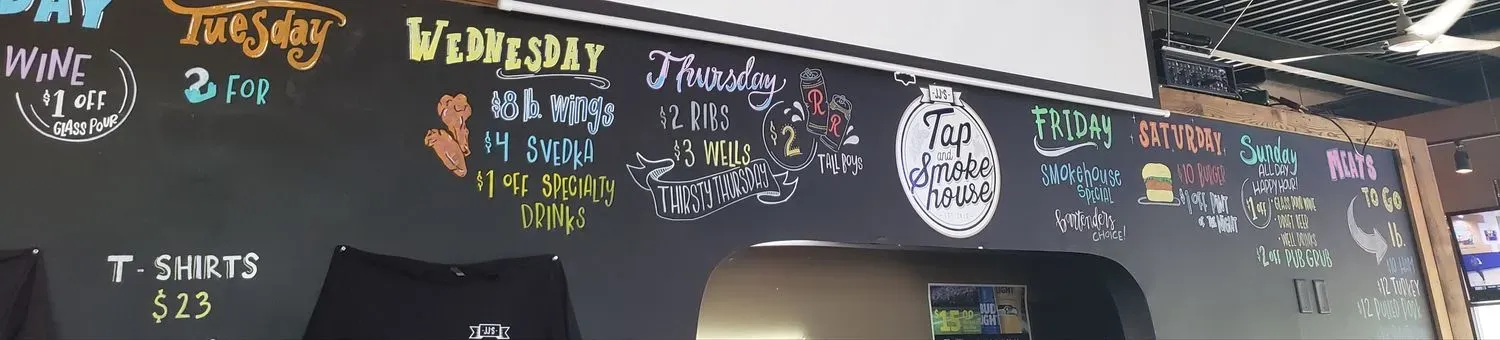 DAY
WINE
$1 OFF
GLASS POUR
Tuesday
2 FOR
T-SHIRTS
$23
WEDNESDAY
$8 lb. Wings
$4 SVEDKA
$1 OFF SPECIALTY
DRINKS
JJS
Thursday
$2 RIBS
$3 WELLS
THIRSTY THURSDAY
$2
R
R
TALL BOYS
JJS
Tap
and
Smoke
house
$15.00
BUD
LIGHT
FRIDAY
SMOKEHOUSE
SPECIAL
bartenders
CHOICE!
SATURDAY
$10 BURGER
$1 OFF PINT
of the NIGHT
Sunday
ALL DAY
HAPPY HOUR!
$1 off
• DRAFT BEER
• WELL DRINKS
$2 off PUB GRUB
MEATS
TO GO
lb.
$12 TURKEY
$12 PULLED PORK